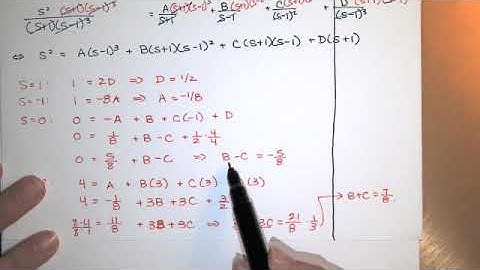 s² (s+1)(s-1)³ / (s+1)(s-1)³ = A(s+1)(s-1)³ / s+1 + B(s+1)(s-1)³ / s-1 + C(s+1)(s-1)³ / (s-1)² + D
⇔ s² = A(s-1)³ + B(s+1)(s-1)² + C(s+1)(s-1) + D(s+1)
s=1: 1 = 2D ⇒ D = 1/2
s=-1: 1 = -8A ⇒ A = -1/8
s=0: 0 = -A + B + C(-1) + D
0 = 1/8 + B - C + 1/2 · 4/4
0 = 5/8 + B - C ⇒ B - C = -5/8
4 = A + B(3) + C(3) (3)
4 = -1/8 + 3B + 3C + 3/2
11/8 + 3B + 3C ⇒ 3C = 21/8 · 1/3 → B + C = 7/8